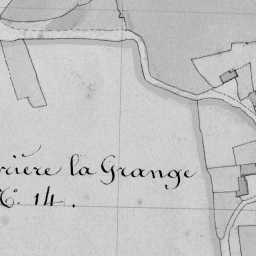 rière la Grange
N.º 14.